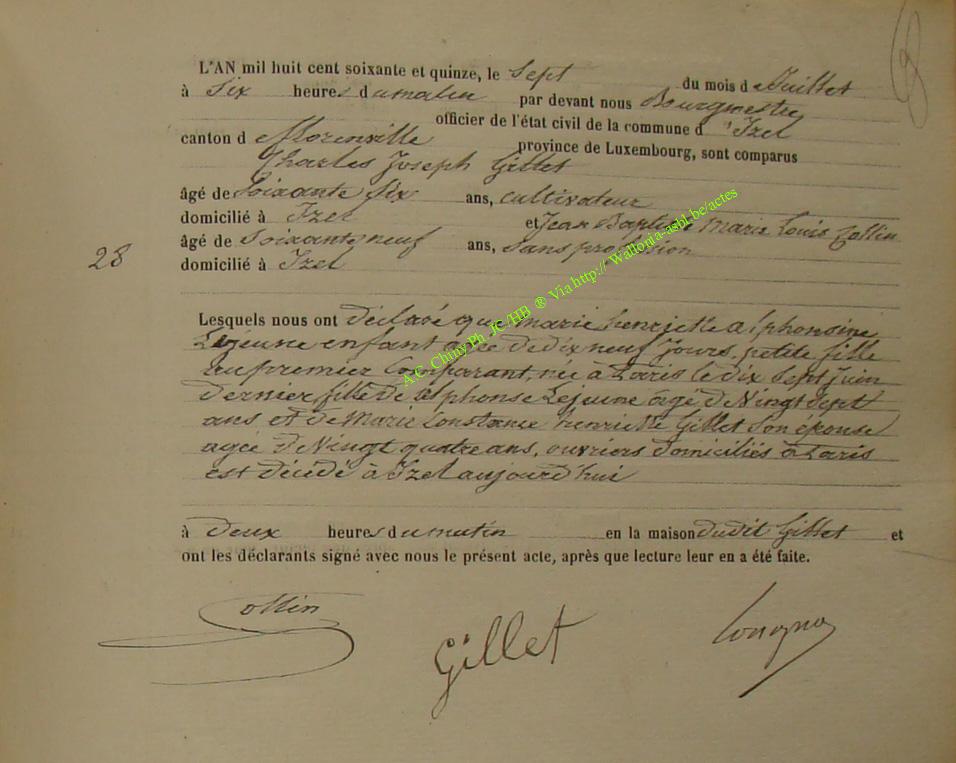 L'AN mil huit cent soixante et quinze, le Sept du mois de Juillet
à Six heures du matin par devant nous Bourgmestre
officier de l'état civil de la commune d'Izel
canton de Florenville province de Luxembourg, sont comparus
Charles Joseph Gillet
âgé de Soixante Six ans, cultivateur
domicilié à Izel et Jean Baptiste Marie Louis Collin
âgé de Soixante neuf ans, Sans profession
28
domicilié à Izel
Lesquels nous ont déclaré que marie henriette alphonsine
Lejeune enfant agée de dix neuf Jours, petite fille
du premier Comparant, née à Paris le dix Sept Juin
dernier fille de alphonse Lejeune agé de Vingt Sept
ans et de Marie Constance henriette Gillet Son épouse
agée de Vingt quatre ans, ouvriers domiciliés à Paris
est décédé à Izel aujourd'hui
à deux heures du matin en la maison dudit Gillet et
ont les déclarants signé avec nous le présent acte, après que lecture leur en a été faite.
Collin
Gillet
A.C. Chiny Ph. JC/HB ® Via http://Wallonia-asbl.be/actes